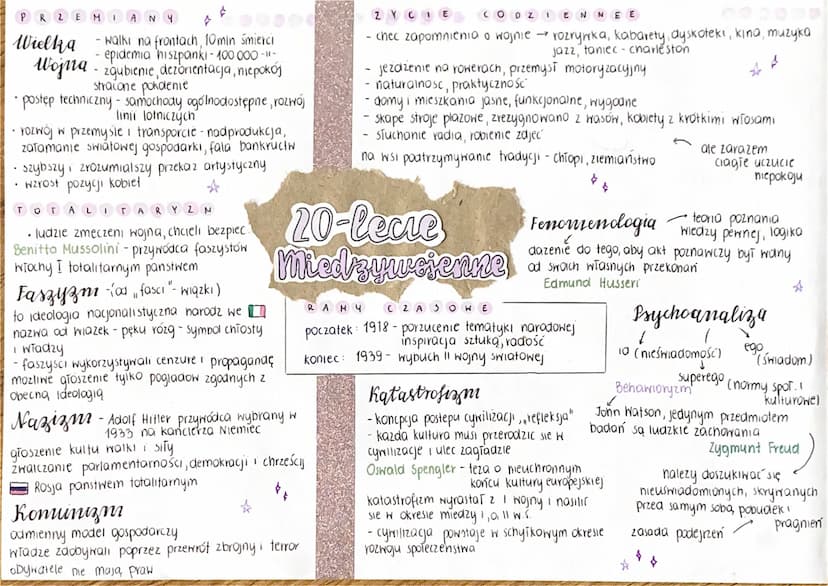 PRZEMIANY
Wielka Wojna
- walki na frontach, 10mln śmierci
- epidemia hiszpanki - 100 000 -||-
- zgubienie, dezorientacja, niepokój
stracone pokolenie
• postęp techniczny - samochody ogólnodostępne, rozwój
linii lotniczych
• rozwój w przemyśle i transporcie - nadprodukcja,
załamanie światowej gospodarki, fala bankructw
• szybszy i zrozumialszy przekaz artystyczny
• wzrost pozycji kobiet
TOTALITARYZM
• ludzie zmęczeni wojną, chcieli bezpiec.
Benitto Mussolini - przywódca faszystów
Włochy I totalitarnym państwem
Faszyzm - (od „fasci" - wiązki)
to ideologia nacjonalistyczna narodz we
nazwa od wiązek - pęku rózg - symbol chłosty
i władzy
- faszyści wykorzystywali cenzurę i propagandę
możliwe głoszenie tylko poglądów zgodnych z
obecną ideologią
Nazizm - Adolf Hitler przywódca wybrany w
1933 na kanclerza Niemiec
głoszenie kultu walki i siły
zwalczanie parlamentarności, demokracji i chrześcij
Rosja państwem totalitarnym
Komunizm
odmienny model gospodarczy
władzę zdobywali poprzez przewrót zbrojny i terror
obywatele nie mają praw
20-lecie
Międzywojenne
RAMY CZASOWE
początek: 1918 - porzucenie tematyki narodowej
inspiracja sztuką, radość
koniec: 1939 - wybuch II wojny światowej
Katastrofizm
- koncpcja postępu cywilizacji „refleksja"
- każda kultura musi przerodzić się w
cywilizację i ulec zagładzie
Oswald Spengler - teza o nieuchronnym
końcu kultury europejskiej
katastrofizm wyrastał z I wojny i nasilił
się w okresie między I, a II w.ś.
- cywilizacja powstaje w schyłkowym okresie
rozwoju społeczeństwa
ŻYCIE CODZIENNEE
- chęć zapomnienia o wojnie → rozrywka, kabarety, dyskoteki, kina, muzyka
jazz, taniec - charleston
- jeżdżenie na rowerach, przemysł motoryzacyjny
- naturalność, praktyczność
- domy i mieszkania jasne, funkcjonalne, wygodne
- skąpe stroje plażowe, zrezygnowano z wąsów, kobiety z krótkimi włosami
- słuchanie radia, robienie zdjęć
na wsi podtrzymywanie tradycji - chłopi, ziemiaństwo
ale zarazem
ciągłe uczucie
niepokoju
Fenomenologia → teoria poznania
wiedzy pewnej, logika
dążenie do tego, aby akt poznawczy był wolny
od swoich własnych przekonań
Edmund Husserl
Psychoanaliza
id (nieświadomość)
ego
(świadom)
superego (normy społ. i
kulturowe)
Behawioryzm
John Watson, jedynym przedmiotem
badań są ludzkie zachowania
Zygmunt Freud
należy doszukiwać się
nieuświadomionych, skrywanych
przed samym sobą, pobudek i
pragnień
zasada podejrzeń